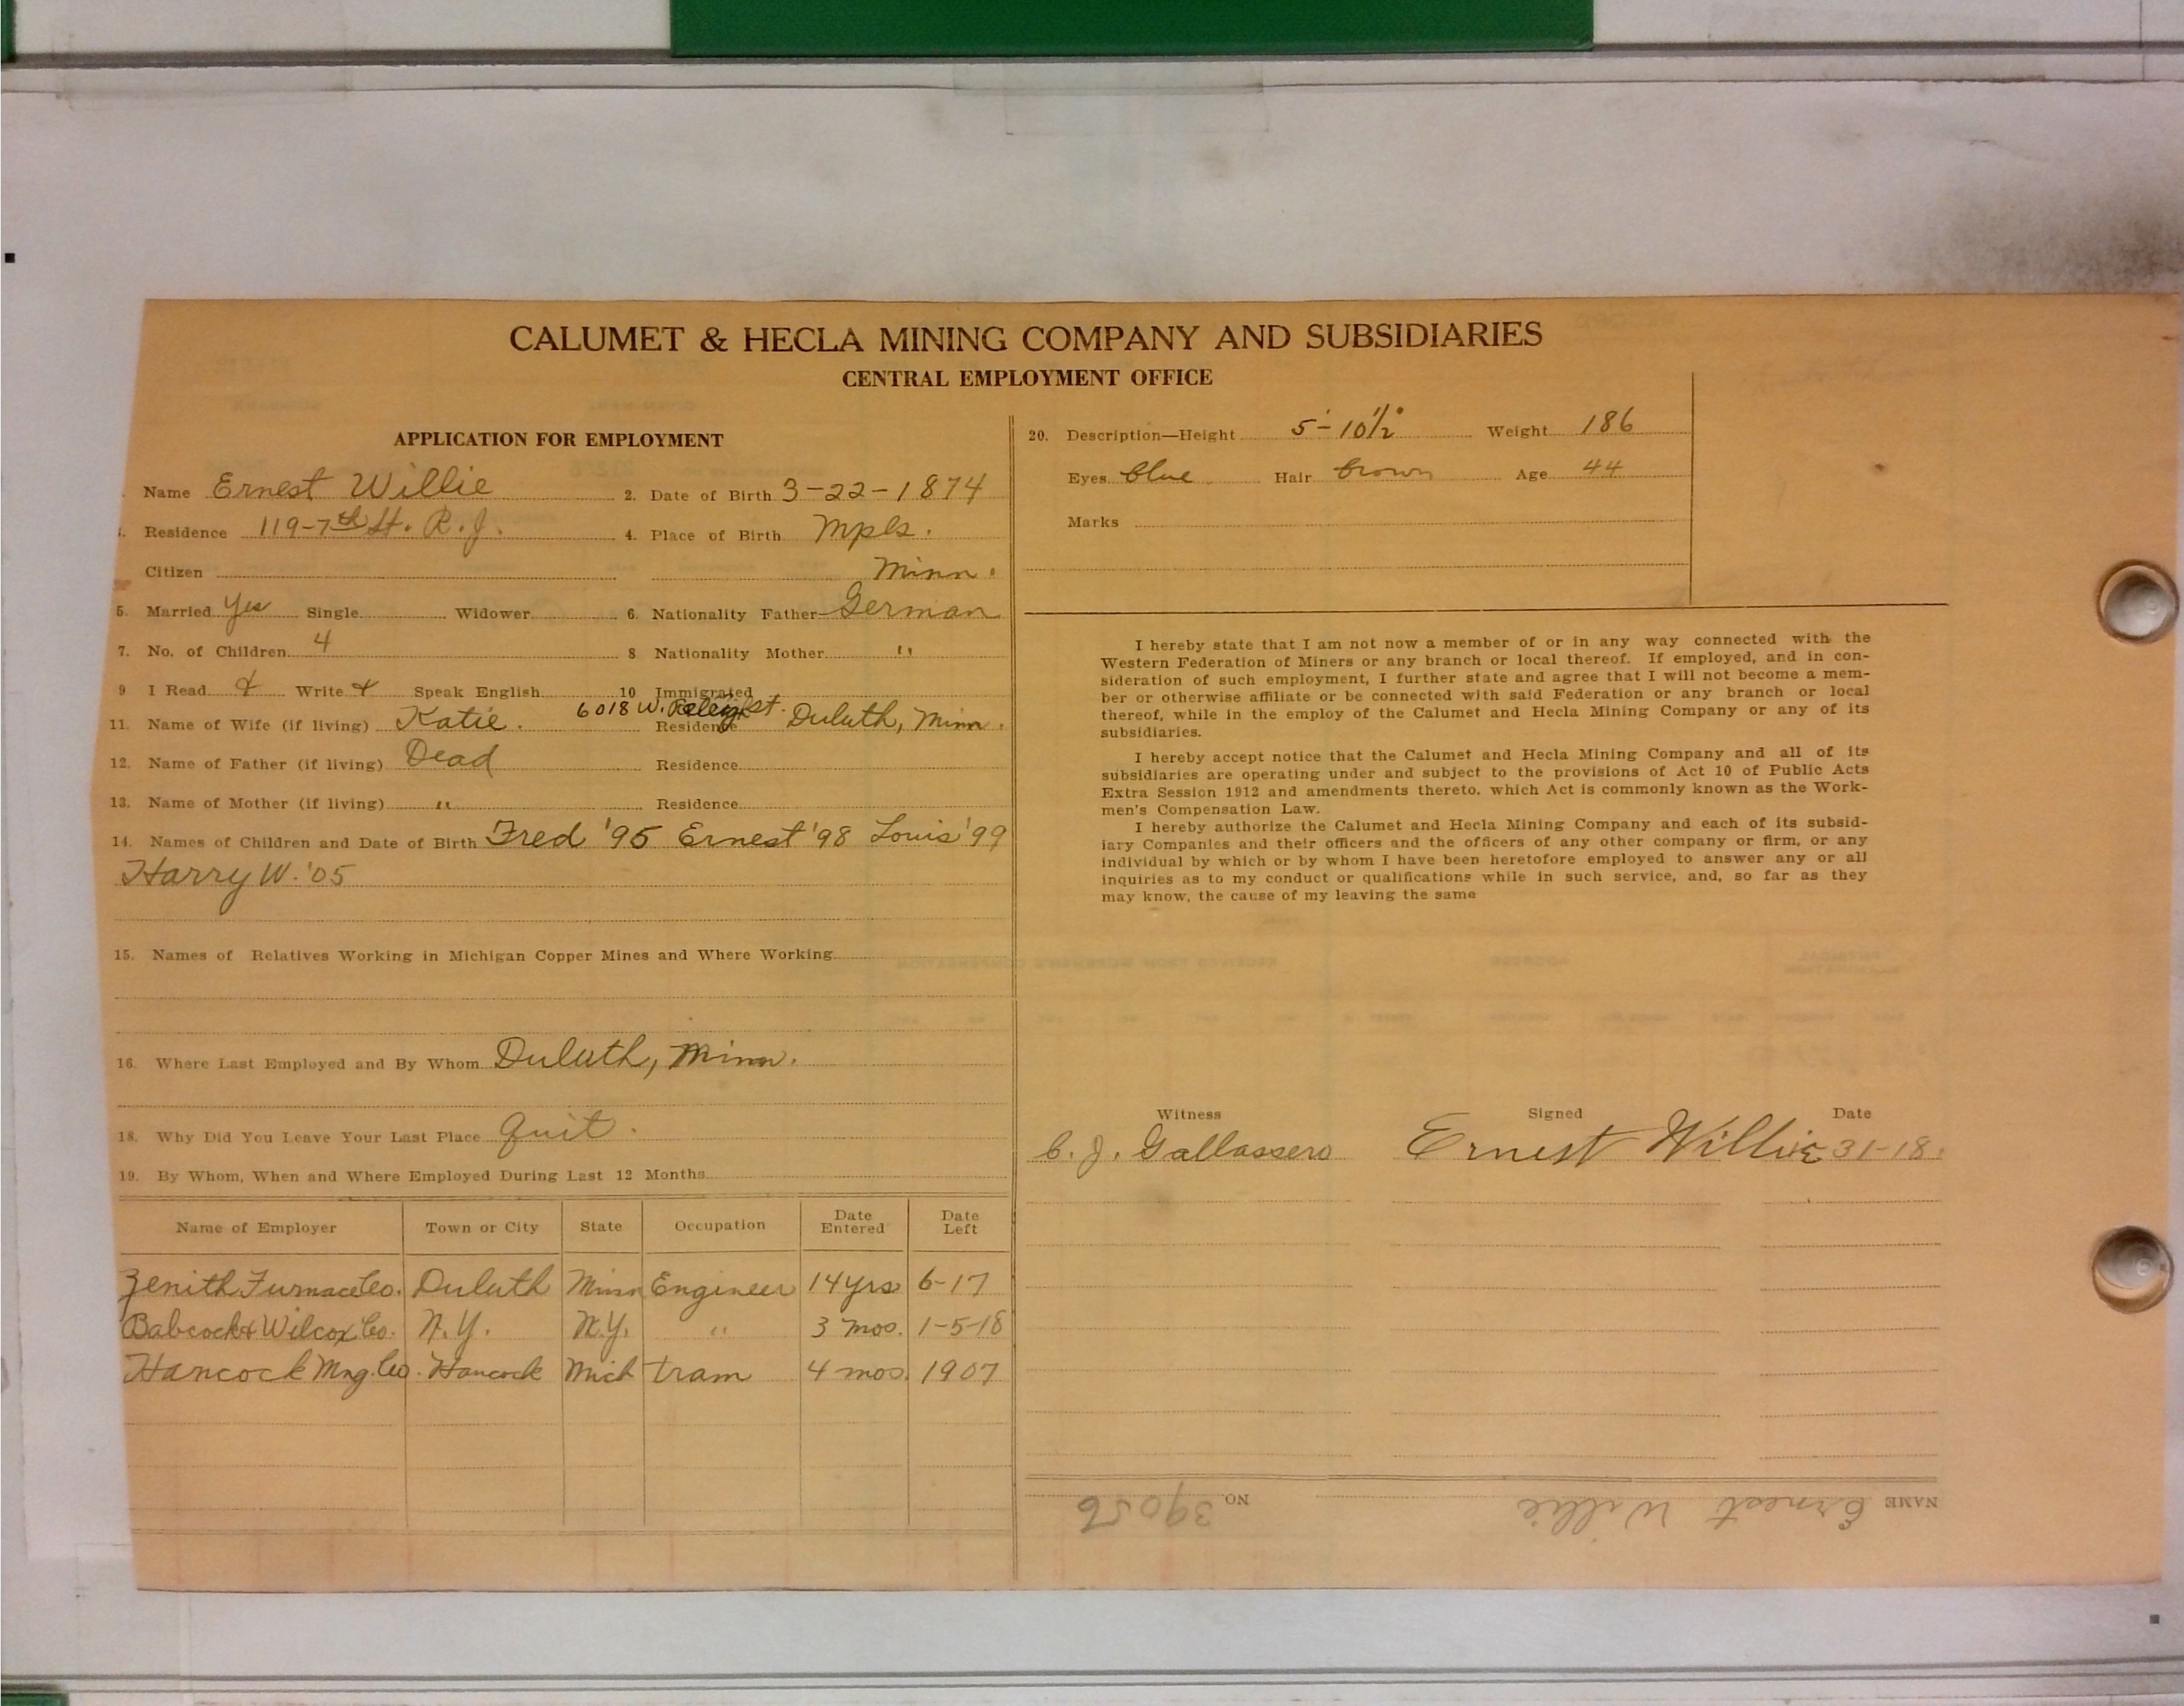 CALUMET & HECLA MINING COMPANY AND SUBSIDIARIES
CENTRAL EMPLOYMENT OFFICE
APPLICATION FOR EMPLOYMENT
Name Ernest Willie 2. Date of Birth 3-22-1874
Residence 119-7th St. R.J. 4. Place of Birth Mpls.
Citizen Minn.
5. Married Yes Single Widower 6. Nationality Father German
7. No. of Children 4 8 Nationality Mother "
9 I Read & Write & Speak English 10 Immigrated
6018 W. St.
11. Name of Wife (if living) Katie. Residence Duluth, Minn.
12. Name of Father (if living) Dead Residence
13. Name of Mother (if living) " Residence
14. Names of Children and Date of Birth Fred '95 Ernest '98 Louis '99
Harry W. '05
15. Names of Relatives Working in Michigan Copper Mines and Where Working
16. Where Last Employed and By Whom Duluth, Minn.
18. Why Did You Leave Your Last Place Quit.
19. By Whom, When and Where Employed During Last 12 Months
Name of Employer Town or City State Occupation Date Entered Date Left
Zenith Furnace Co. Duluth Minn Engineer 14 yrs 6-17
Babcock & Wilcox Co. N.Y. N.Y. " 3 mos. 1-5-18
Hancock Mng. Co. Hancock Mich tram 4 mos. 1907
20. Description—Height 5'-10 1/2" Weight 186
Eyes blue Hair brown Age 44
Marks
I hereby state that I am not now a member of or in any way connected with the
Western Federation of Miners or any branch or local thereof. If employed, and in con-
sideration of such employment, I further state and agree that I will not become a mem-
ber or otherwise affiliate or be connected with said Federation or any branch or local
thereof, while in the employ of the Calumet and Hecla Mining Company or any of its
subsidiaries.
I hereby accept notice that the Calumet and Hecla Mining Company and all of its
subsidiaries are operating under and subject to the provisions of Act 10 of Public Acts
Extra Session 1912 and amendments thereto, which Act is commonly known as the Work-
men's Compensation Law.
I hereby authorize the Calumet and Hecla Mining Company and each of its subsid-
iary Companies and their officers and the officers of any other company or firm, or any
individual by which or by whom I have been heretofore employed to answer any or all
inquiries as to my conduct or qualifications while in such service, and, so far as they
may know, the cause of my leaving the same
Witness Signed Date
C. J. Gallassero Ernest Willie 31-18.
NAME Ernest Willie NO. 39056